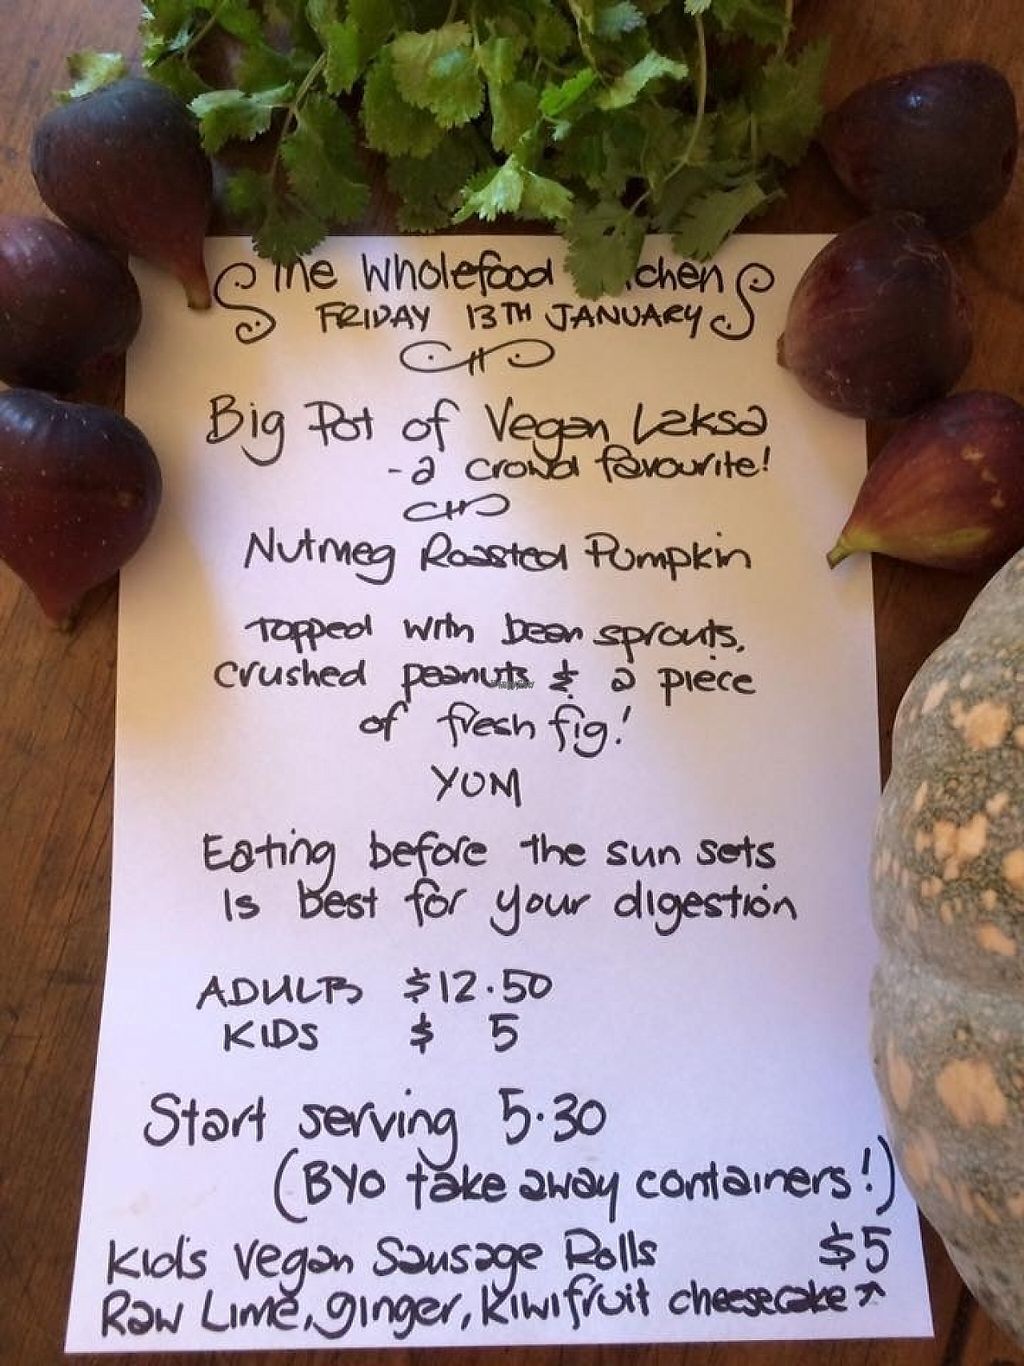 The Wholefood chen
FRIDAY 13TH JANUARY
Big Pot of Vegan Laksa
- a crowd favourite!
Nutmeg Roasted Pumpkin
Topped with bean sprouts,
crushed peanuts & a piece
of fresh fig!
YUM
Eating before the sun sets
is best for your digestion
ADULTS $12.50
KIDS $ 5
Start serving 5.30
(BYO take away containers!)
Kids Vegan Sausage Rolls $5
Raw Lime, ginger, Kiwifruit cheesecake ↗